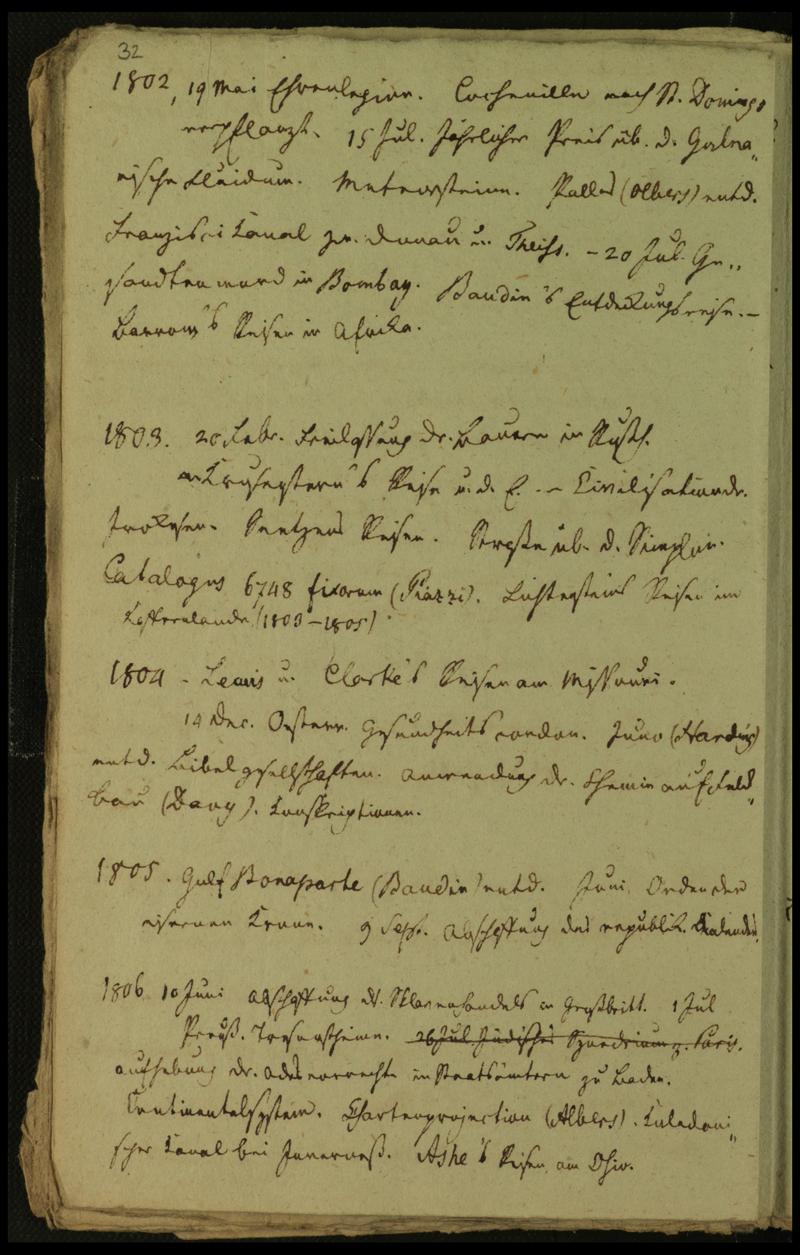 32
1802, 19 Mai Ehrenlegion. Cochenille nach St. Domingo
verpflanzt. 15 Jul. Jährlicher Preis üb. d. Galva„
nische Fluidum. Meteorsteine. Pallas (Olbers) entd.
Franzisci Kanal zw. Donau u. Theiss. – 20 Jul. Ge„
sandtenmord in Bombay. Baudin's Entdeckungsreise. –
Barrow's Reisen in Afrika.
1803. 20 Febr. Freilassung der Bauern in Russl.
Krusenstern's Reise u. d. E. – Civilisation dr.
Irokesen. Seetzens Reisen. Strasse üb. d. Simplon.
Catalogus 6748 fixarum (Piazzi). Lichtensteins Reisen im
Kaffernlande (1803–1805)
1804 – Lewis u. Clarke's Reisen am Missouri.
14 Dec. Oesterr. Gesundheitscordon. Juno (Harding)
entd. Bibelgesellschaften. Anwendung dr. Chemie auf Feld„
bau (Davy). Conskriptionen.
1805. Golf Bonaparte (Baudin) entd. Juni Orden der
eisernen Krone. 9 Sept. Abschaffung des republik. Kalenders.
1806 10 Juni Abschaffung ds. Sklavenhandels in Grossbritt. 1 Jul
Preuß. Tresorscheine. 26 Jul Jüdisches Synedrium z. Paris.
Aufhebung dr. Adelsvorrechte in Staatsämtern zu Baden.
Continentalsystem. Chartenprojection (Albers). Caledoni„
scher Kanal bei Inverness. Ashe's Reisen am Ohio.